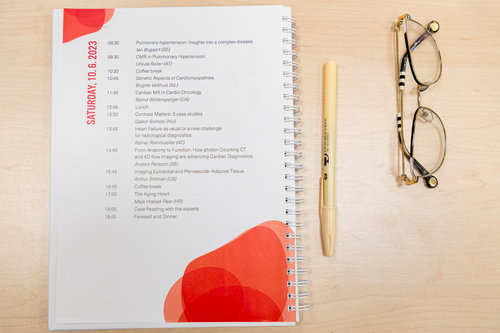 SATURDAY, 10. 6. 2023
08:30 Pulmonary hypertension: Insights into a complex disease
Jan Bogaert (BE)
09:30 CMR in Pulmonary Hipertension
Ursula Reiter (AT)
10:30 Coffee break
10:45 Genetic Aspects of Cardiomyopathies
Birgitte Velthuis (NL)
11:45 Cardiac MR in Cardio-Oncology
Bernd Wintersperger (CA)
12:45 Lunch
13:30 Contrast Matters: 3 case studies
Gabor Somow (HU)
13:45 Heart Failure as usual or a new challenge
for radiological diagnostics
Rainer Rienmueller (AT)
14:45 From Anatomy to Function: How photon Counting CT
and 4D flow Imaging are advancing Cardiac Diagnostics
Anders Persson (SE)
15:45 Imaging Epicardial and Perivascular Adipose Tissue
Arthur Stillman (US)
16:45 Coffee break
17:00 The Aging Heart
Maja Hrabak Paar (HR)
18:00 Case Reading with the experts
18:45 Farewell and Dinner